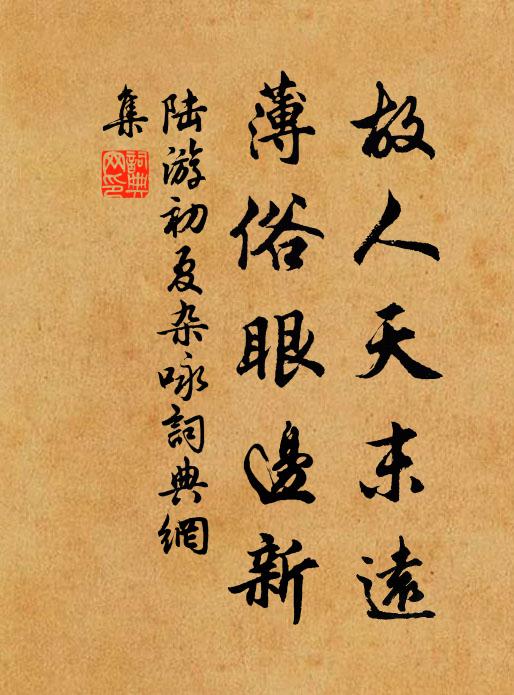 故人天末遠
薄俗眼邊新
陆游初夏杂咏詞典網
集
詞典
网印